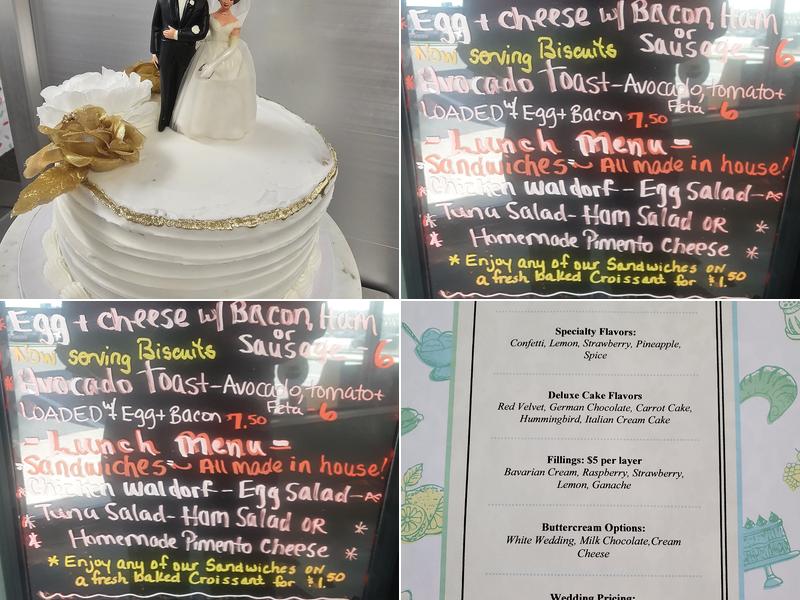 Egg + cheese w/ Bacon, Ham
or
Now serving Biscuits Sausage - 6
* Avocado Toast - Avocado, Tomato +
Feta - 6
LOADED w/ Egg + Bacon 7.50
- Lunch Menu -
Sandwiches ~ All made in house!
Chicken Waldorf - Egg Salad -
* Tuna Salad - Ham Salad OR *
* Homemade Pimento Cheese *
* Enjoy any of our Sandwiches on
a fresh baked Croissant for $1.50
Egg + cheese w/ Bacon, Ham
or
Now serving Biscuits Sausage 6
* Avocado Toast - Avocado, Tomato +
Feta - 6
LOADED w/ Egg + Bacon 7.50
- Lunch Menu -
Sandwiches ~ All made in house!
Chicken Waldorf - Egg Salad -
Tuna Salad - Ham Salad OR *
* Homemade Pimento Cheese *
* Enjoy any of our Sandwiches on
a fresh baked Croissant for $1.50
Specialty Flavors:
Confetti, Lemon, Strawberry, Pineapple,
Spice
Deluxe Cake Flavors
Red Velvet, German Chocolate, Carrot Cake,
Hummingbird, Italian Cream Cake
Fillings: $5 per layer
Bavarian Cream, Raspberry, Strawberry,
Lemon, Ganache
Buttercream Options:
White Wedding, Milk Chocolate,Cream
Cheese
Wedding Pricing: